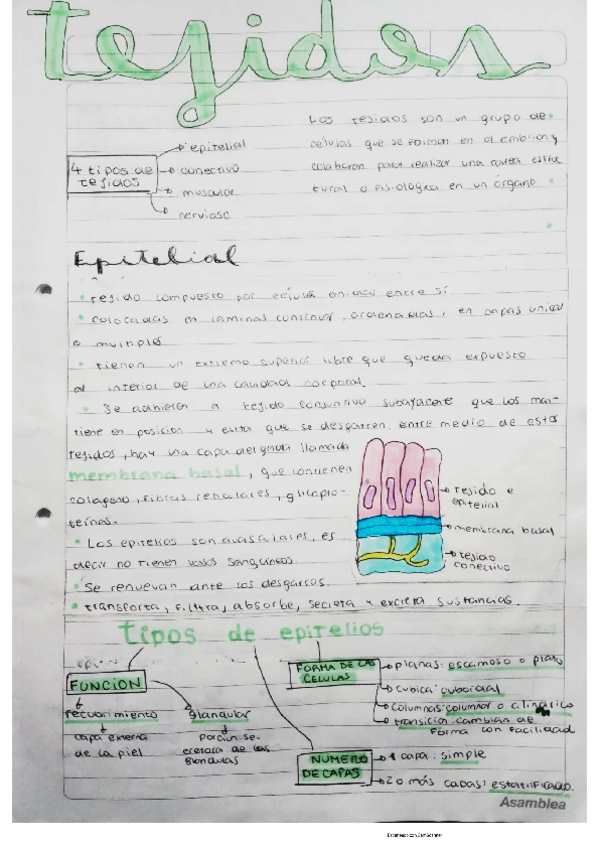 tejidos
Los tejidos son un grupo de
celulas que se forman en el embrion y
colaboran para realizar una tarea estruc
tural o fisiologica en un órgano
4 tipos de
tejidos
epitelial
conectivo
muscular
nervioso
Epitelial
• tejido compuesto por células unidas entre sí.
• colocadas en laminas continuas, ordenadas, en capas unicas
o multiples
• tienen un extremo superior libre que queda expuesto
al interior de una cavidad corporal.
• Se adhieren a tejido conjuntivo subayacente que los man-
tiene en posicion y evita que se desgarren. entre medio de estos
tejidos, hay una capa delgada llamada
membrana basal, que contienen
colageno, fibras reticulares, glicopro-
teinas.
• Los epitelios son avasculares, es
decir no tienen vasos sanguineos.
• Se renuevan ante los desgarros.
• transporta, filtra, absorbe, secreta y excreta sustancias.
tejido e
epitelial
membrana basal
tejido
conectivo
tipos de epitelios
FUNCION
recubrimiento
capa externa
de la piel
glandular
porcion se-
cretora de las
glandulas
FORMA DE LAS
CELULAS
planas: escamoso o plano
cubica: cuboidal
columnas: columnar o cilindrico
transicion: cambian de
forma con facilidad
NUMERO
DE CAPAS
1 capa: simple
2 o más capas: estratificado.
Asamblea
Escaneado con CamScanner